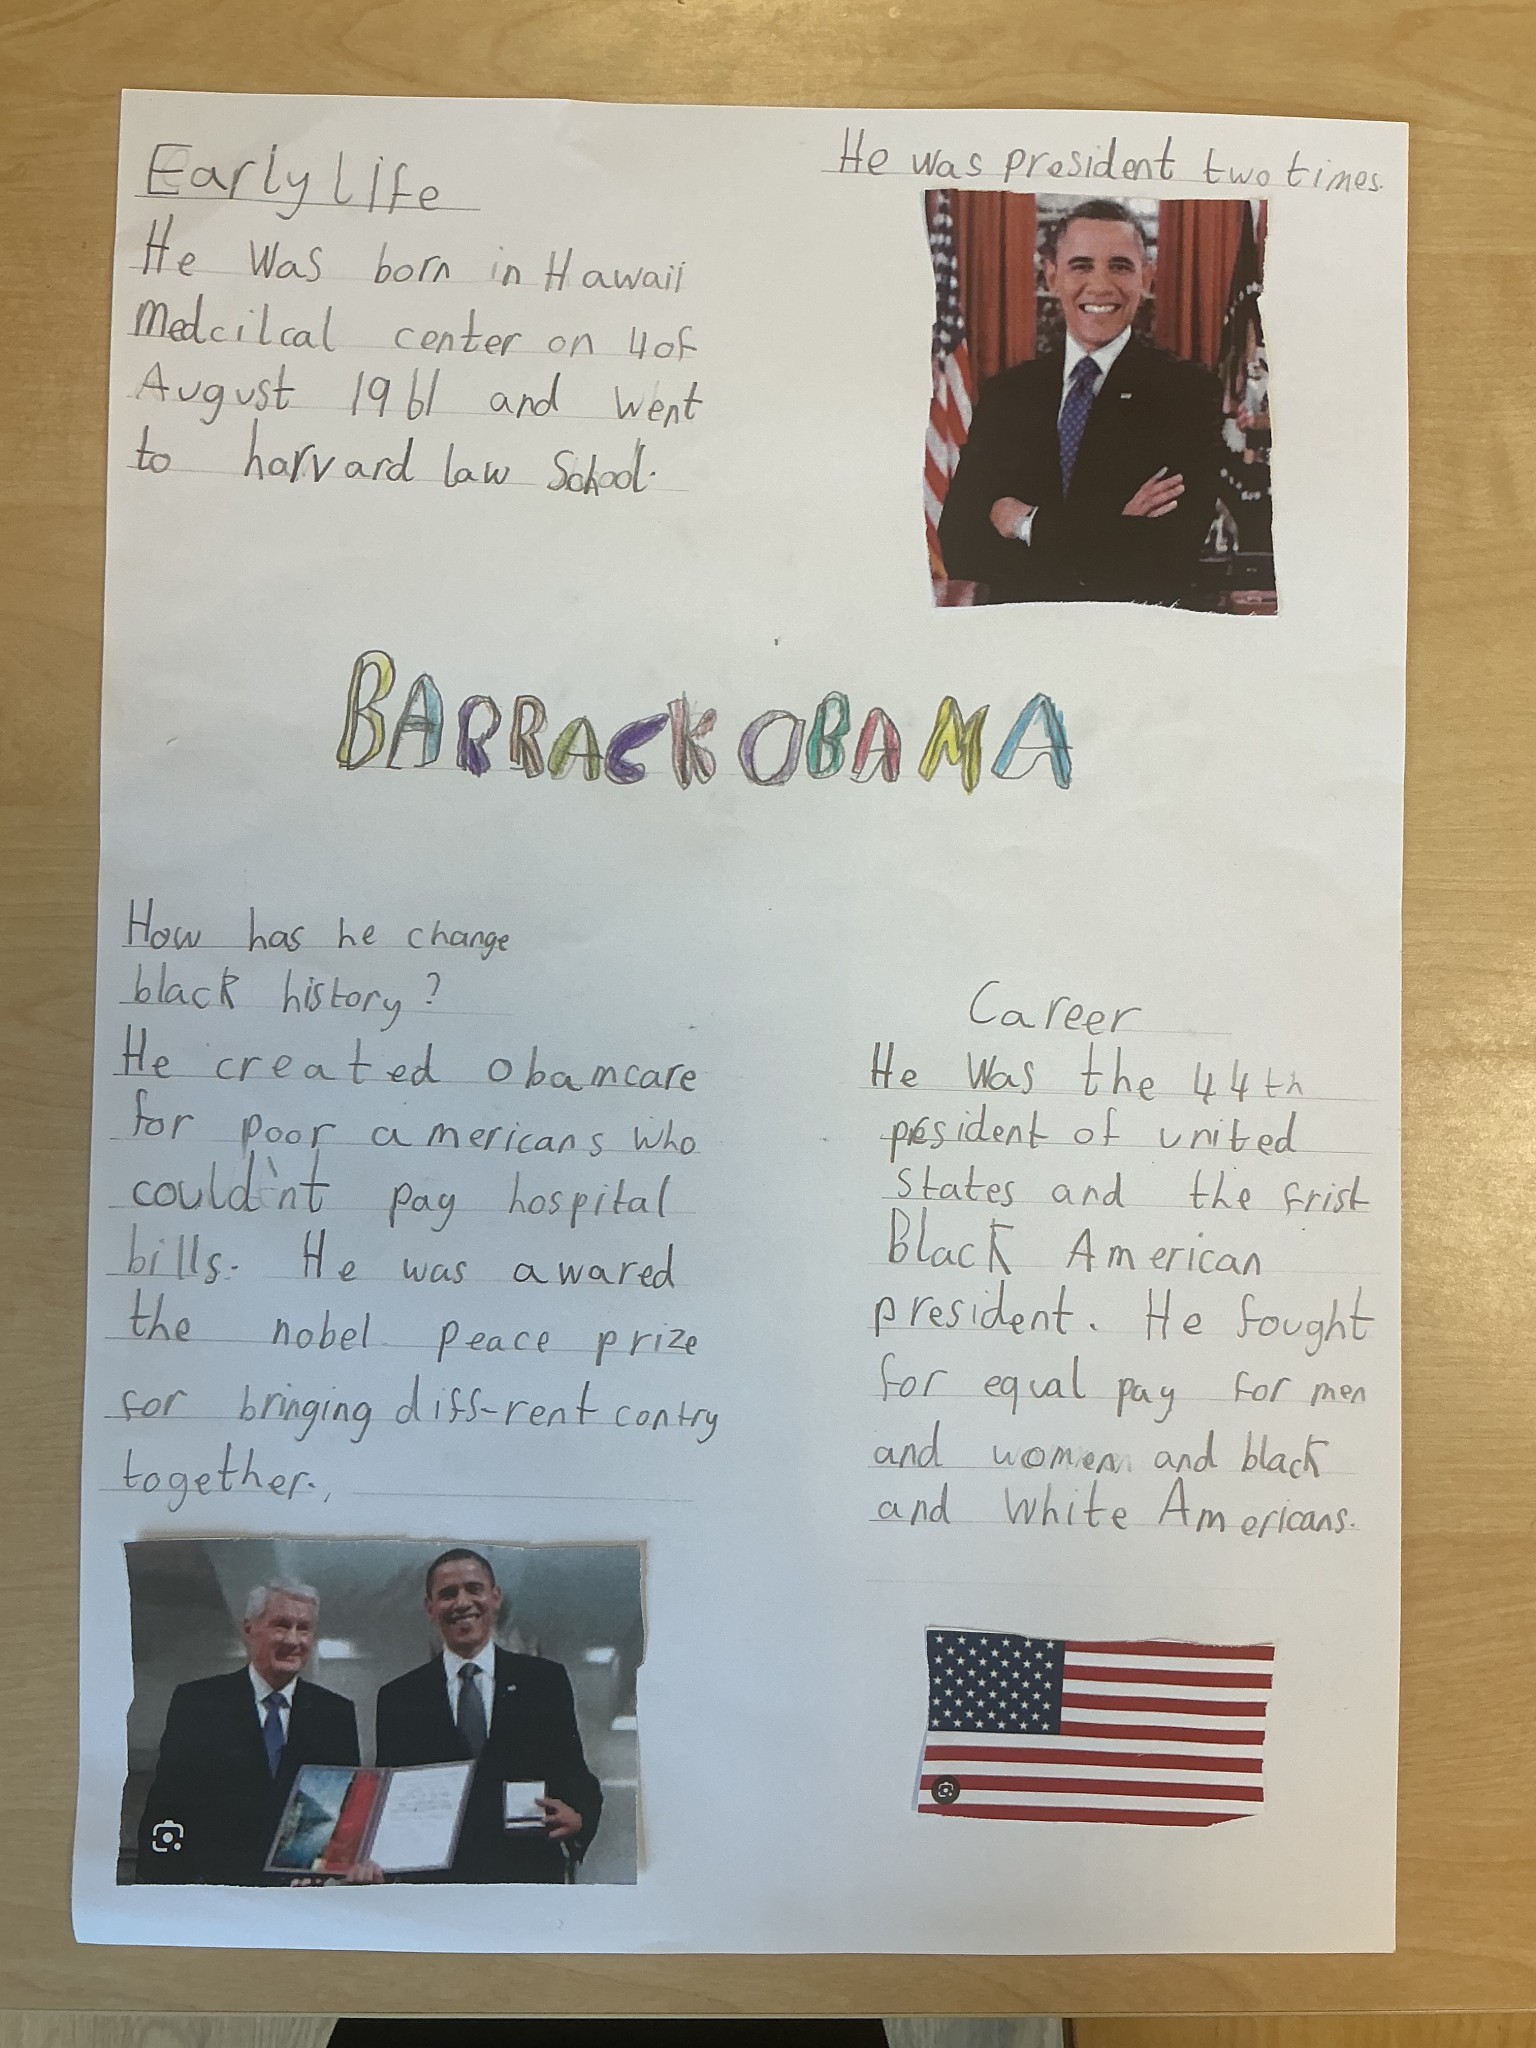 Early life
He Was born in Hawaii
Medcilcal center on 4of
August 1961 and went
to harvard law School.
He was president two times.
BARRACK OBAMA
How has he change
black history?
He created obamcare
for poor americans who
could'nt pay hospital
bills. He was awared
the nobel peace prize
for bringing diff-rent contry
together.,
Career
He Was the 44th
president of united
states and the frist
Black American
president. He fought
for equal pay for men
and women and black
and White Americans.